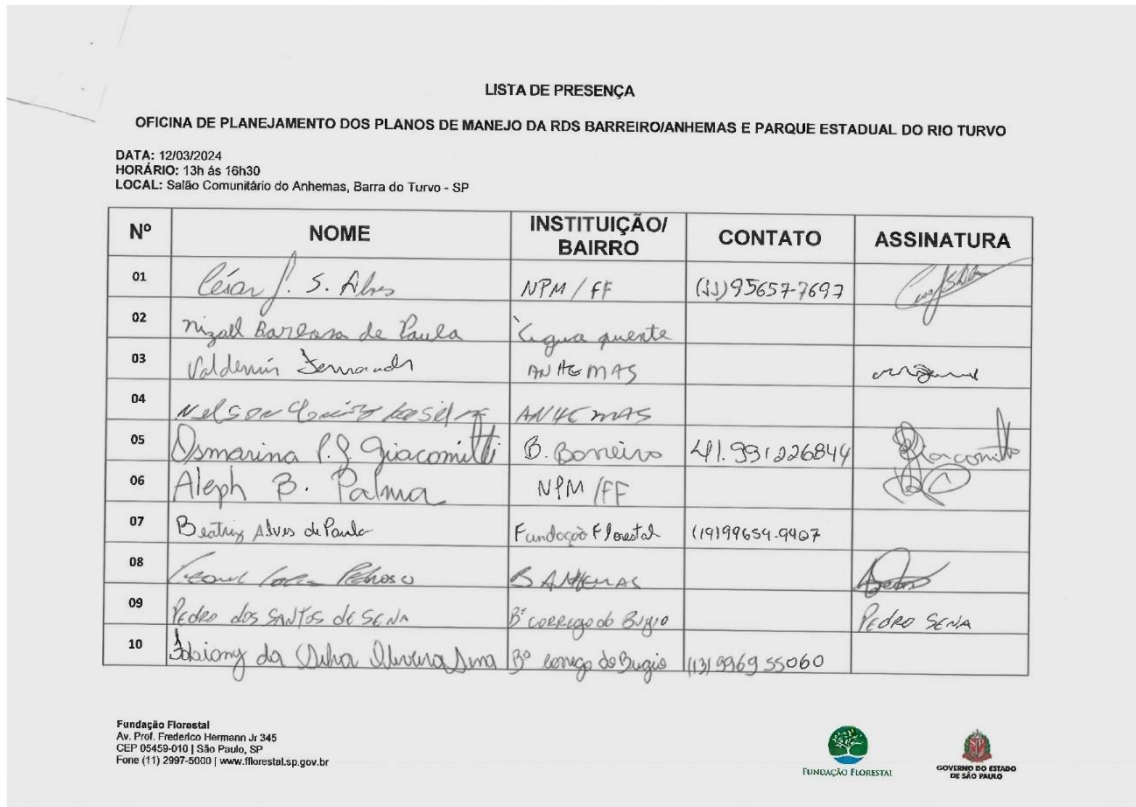 LISTA DE PRESENÇA
OFICINA DE PLANEJAMENTO DOS PLANOS DE MANEJO DA RDS BARREIRO/ANHEMAS E PARQUE ESTADUAL DO RIO TURVO
DATA: 12/03/2024
HORÁRIO: 13h ás 16h30
LOCAL: Salão Comunitário do Anhemas, Barra do Turvo - SP
Nº NOME INSTITUIÇÃO/ BAIRRO CONTATO ASSINATURA
01 César J. S. Alves NPM/FF (11)95657-7697
02 Nizael Barbosa de Paula Água quente
03 Valdemir Fernands ANHEMAS
04 Nelson ANHEMAS
05 Osmarina P. S. Giacomitti B. Barreiro 41.991226844 Giacomitti
06 Aleph B. Palma NPM/FF
07 Beatriz Alves de Paula Fundação Florestal (19)99654-9407
08 Pedroso B ANHEMAS
09 PEDRO dos SANTOS de SENA Bº CORREGO do BUGIO PEDRO SENA
10 Fabiany da Silva Oliveira Sena Bº corrego do Bugio (13)996955060
Fundação Florestal
Av. Prof. Frederico Hermann Jr 345
CEP 05459-010 | São Paulo, SP
Fone (11) 2997-5000 | www.fflorestal.sp.gov.br
FUNDAÇÃO FLORESTAL
GOVERNO DO ESTADO
DE SÃO PAULO